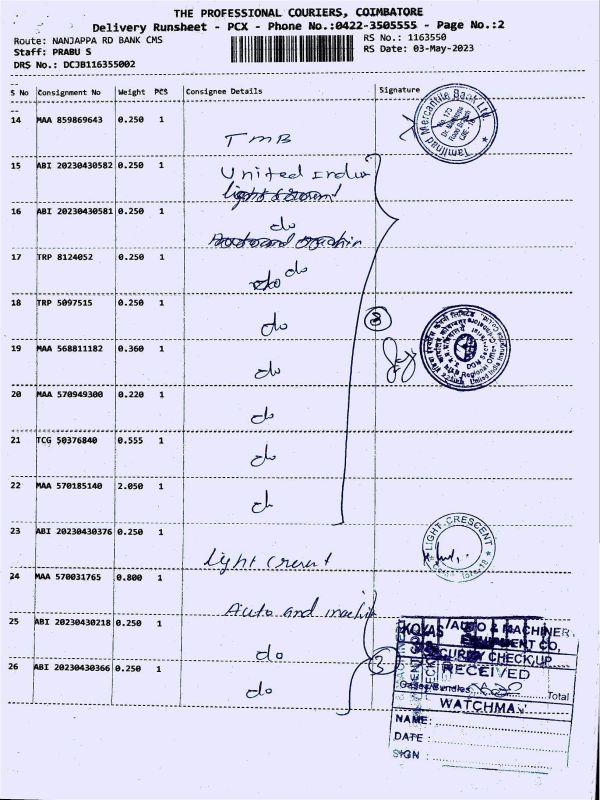 THE PROFESSIONAL COURIERS, COIMBATORE
Delivery Runsheet - PCX - Phone No.:0422-3505555 - Page No.:2
Route: NANJAPPA RD BANK CMS
RS No.: 1163550
Staff: PRABU S
RS Date: 03-May-2023
DRS No.: DCJB116355002
S No Consignment No Weight PCS Consignee Details Signature
14 MAA 859869643 0.250 1
TMB
Tamilnad Mercantile Bank Ltd.
No. 173
15 ABI 20230430582 0.250 1
United India
light cresent
16 ABI 20230430581 0.250 1
do
Auto and machin
17 TRP 8124052 0.250 1
do do
18 TRP 5097515 0.250 1
do
19 MAA 568811182 0.360 1
do
Regional Office
United India
20 MAA 570949300 0.220 1
do
21 TCG 50376840 0.555 1
do
22 MAA 570185140 2.050 1
do
23 ABI 20230430376 0.250 1
light cresent
LIGHT-CRESCENT
24 MAA 570031765 0.800 1
Auto and machin
25 ABI 20230430218 0.250 1
do
KOVAS AUTO & MACHINERY
EQUIPMENT CO,
SECURITY CHECK UP
26 ABI 20230430366 0.250 1
do
3
RECEIVED
Cases/Bundles Total
WATCHMAN
NAME:
DATE:
SIGN: